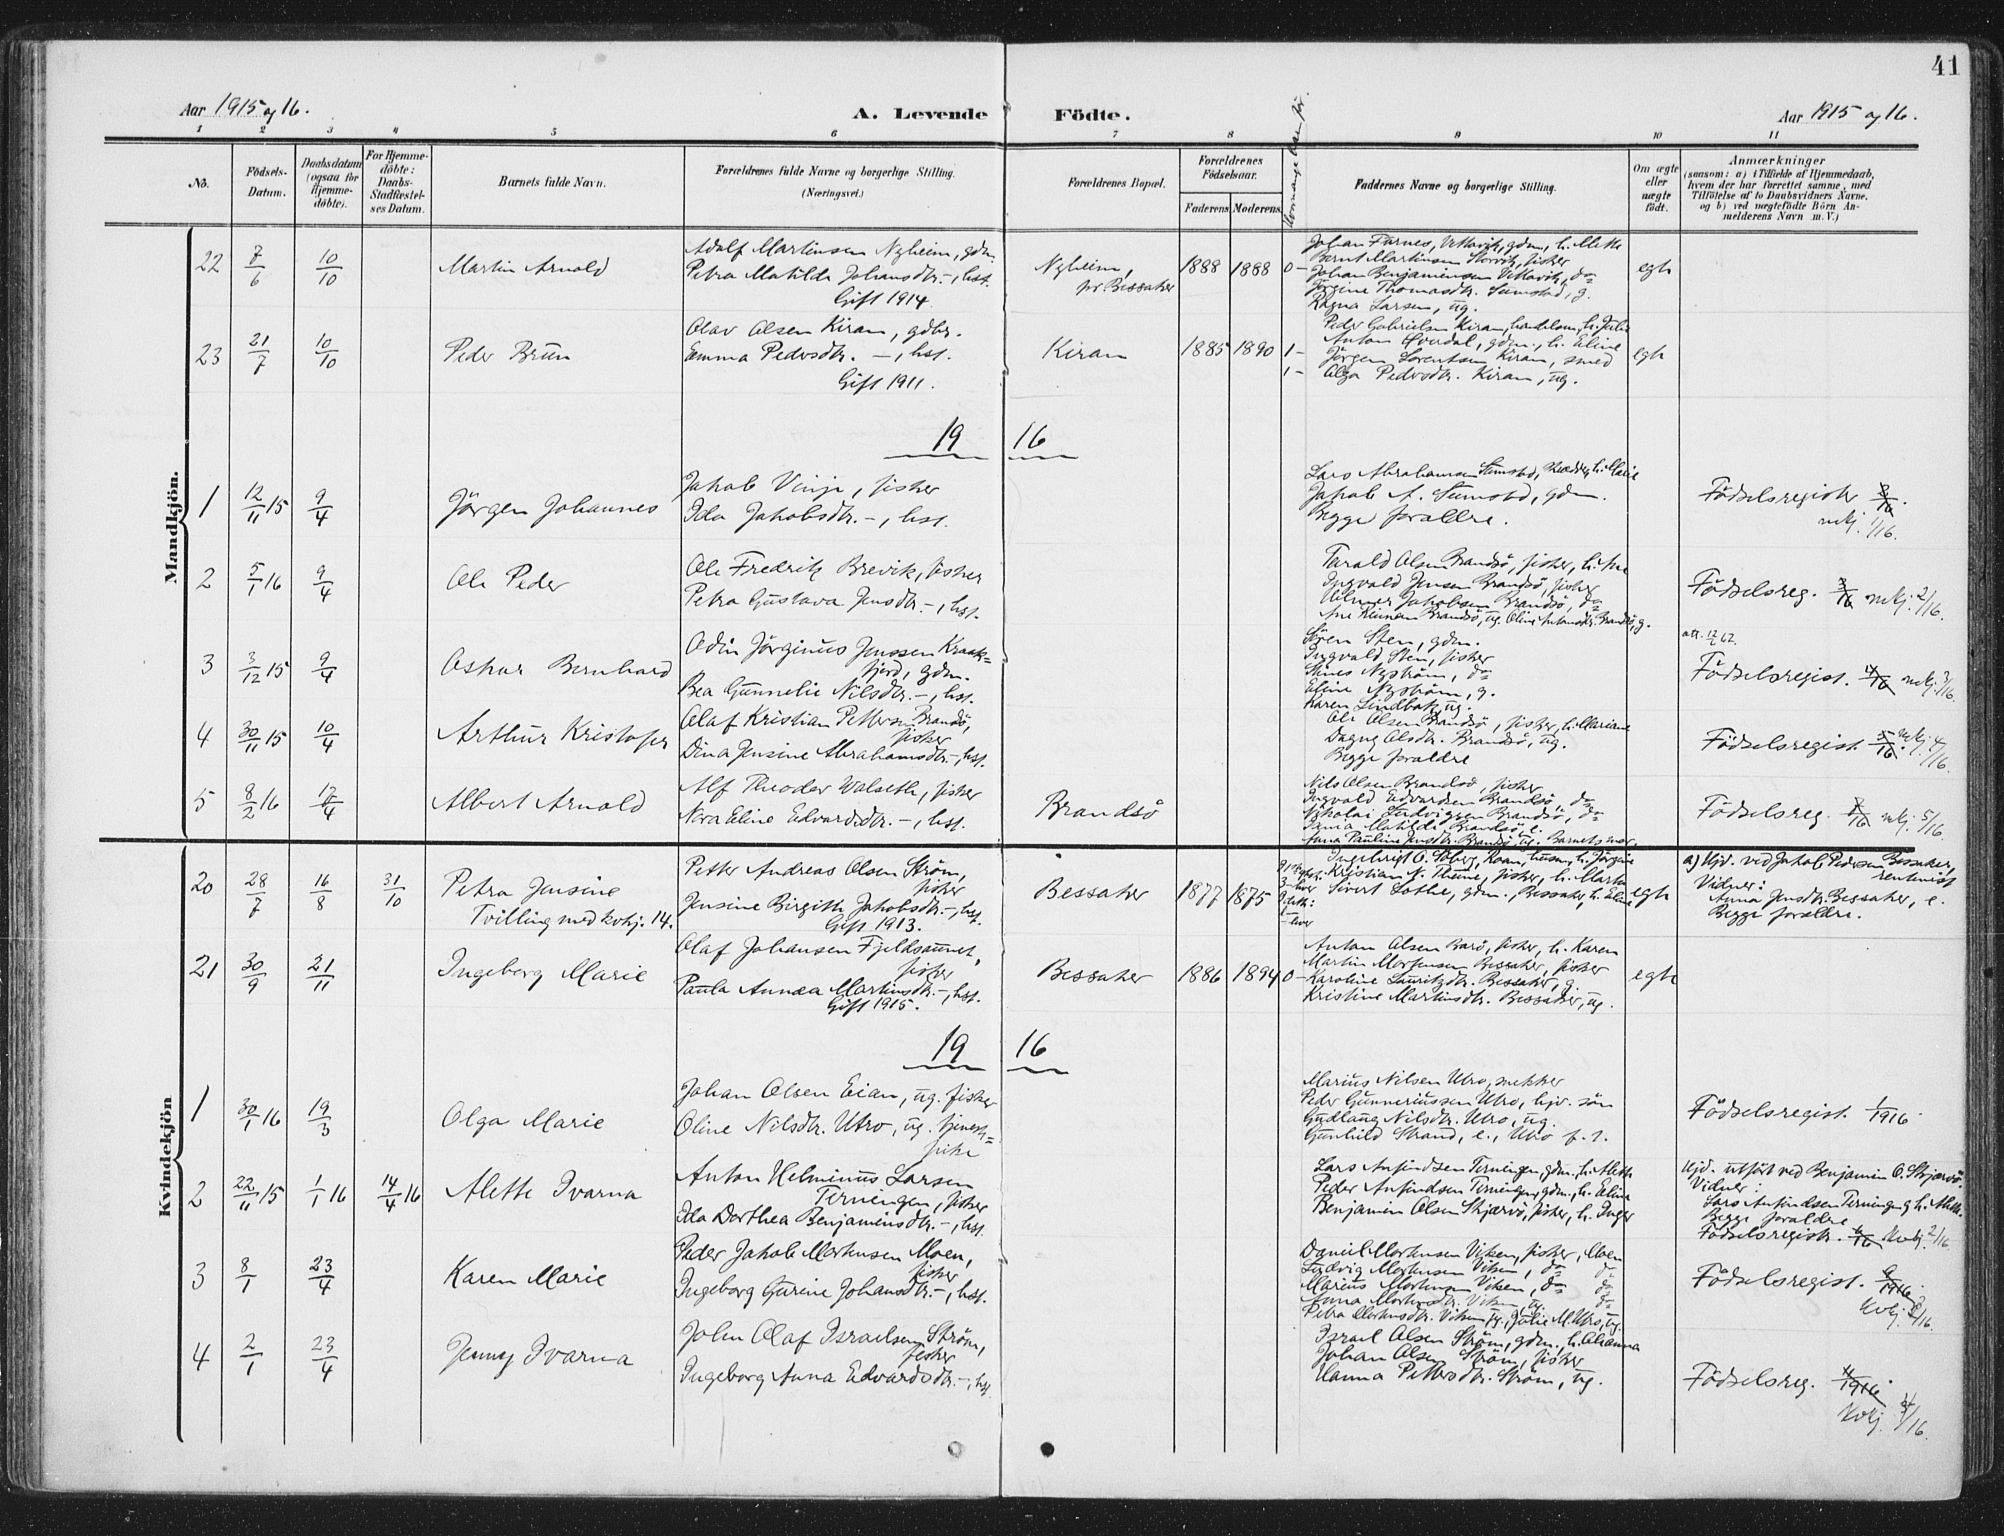 41
Aar 1915 og 16.
A. Levende Födte.
Aar 1915 og 16.
1 2 3 4 5 6 7 8 9 10 11
No.
Födsels-Datum.
Daabsdatum (ogsaa for Hjemme-döbte).
For Hjemme-döbte: Daabs-Stadfæstel-ses Datum.
Barnets fulde Navn.
Forældrenes fulde Navne og borgerlige Stilling.
(Næringsvei.)
Forældrenes Bopæl.
Forældrenes Födselsaar.
Faderens. Moderens.
Faddernes Navne og borgerlige Stilling.
Om ægte eller uægte födt.
Anmærkninger
(saasom: a) i Tilfælde af Hjemmedaab,
hvem der har forrettet samme, med
Tilföielse af to Daabsvidners Navne,
og b) ved uægtefödte Börn An-
melderens Navn m. V.)
Mandkjön.
22 7/6 10/10 Martin Arnold
Adolf Martinsen Nyheim, gdm.
Petra Matilde Johansdtr. –, hst.
Gift 1914.
Nyheim,
pr. Bessaker
1888 1888 0–
Johan Farnes, Vittavik, gdm, h. Mette
Bernt Martinsen Storvik, fisker
Johan Benjaminsen Vittavik, do
Jörgine Thomasdtr. Sumstad, g.
Ragna Larsen, ug.
egte
23 21/7 10/10 Peder Brun
Olav Olsen Kiran, gdbr.
Emma Pedersdtr. –, hst.
Gift 1911.
Kiran 1885 1890 1–
1–
Peder Gabrielsen Kiran, handelsm, h. Julie
Anton Överdal, gdm., h. Eline
Jörgen Lorentsen Kiran, smed
Olga Pedersdtr. Kiran, ug.
egte
19 16
1 12/11 15 9/4 Jörgen Johannes
Jakob Vinje, fisker
Ida Jakobsdtr. –, hst.
Lars Abrahamsen Sumstad, skrædder, h. Marie
Jakob A. Sumstad, gdm.
Begge foraldre.
Födselsregister
mkj. 1/16.
2 5/1 16 9/4 Ole Peder
Ole Fredrik Brevik, fisher
Petra Gustava Jensdtr. –, hst.
Tarald Olsen Brandsö, fisker, h. Ane
Ingvald Jensen Brandsö, fisker
Hilmer Jakobsen Brandsö, do
Ane Brandsö, ug. Oline Antonsdtr. Brandsö, g.
Födselsreg. mkj. 2/16.
3 3/12 15 9/4 Oskar Bernhard
Odin Jörginus Jenssen Kraak-
fjord, gdm.
Bea Gunnelie Nilsdtr. –, hst.
Sören Sten, gdm.
Ingvald Sten, fisker
Nyström, do
Eline Nyström, g.
Karen Lindbak, ug.
att. 12/2 62.
Födselsregist. mkj. 3/16.
4 30/11 15 10/4 Arthur Kristofer
Olaf Kristian Pettersen Brandsö,
fisker
Dina Jensine Abrahamsdtr. –, hst.
Ole Olsen Brandsö, fisker, h. Mariane
Dagny Olsdtr. Brandsö, ug.
Begge foraldre
Födselsregist. mkj. 4/16.
5 8/2 16 /4 Albert Arnold
Alf Theodor Walseth, fisker
Nora Eline Edvardsdtr. –, hst.
Brandsö
Nils Olsen Brandsö, fisker
Ingvald Edvardsen Brandsö, do
Nikolai Ludvigsen Brandsö, do
Matilde Brandsö, e.
Anna Pauline Jensdtr. Brandsö, ug. Barnets mor.
Födselsreg. mkj. 5/16
Kvindekjön
20 28/7 16/8 31/10 Petra Jensine
Tvilling med kvkj. 14.
Petter Andreas Olsen Ström,
fisker
Jensine Birgitte Jakobsdtr. –, hst.
Gift 1913.
Bessaker 1877 1875
Ingebrigt O. Söberg, Roan, husm., h. Jörgine
Kristian N. Theine, fisker, h. Marta
Sivert Lothe, gdm., Bessaker, h. Eline
egte
a) Hjd. ved Jakob Pedersen Bessaker,
rentenist
Vidner:
Anna Jensdtr. Bessaker, e.
Begge foraldre.
21 30/9 21/11 Ingeborg Marie
Olaf Johansen Fjeldsaunet,
fisker
Paula Annæa Martinsdtr. –, hst.
Gift 1915.
Bessaker 1886 1894 0–
Anton Olsen Barö, fisker, h. Karen
Martin Mortensen Bessaker, fisker
Karoline Lauritzdtr. Bessaker, g.
Kristine Martinsdtr. Bessaker, ug.
egte
19 16
1 30/1 16 19/3 Olga Marie
Johan Olsen Eian, ug. fisker
Oline Nilsdtr. Utro, ug. tjenest-
pike
Marius Nilsen Utro, snekker
Peder Gunneriussen Utro, hjv. sön
Gudlaug Nilsdtr. Utro, ug.
Gunhild Strand, e., Utro f. t.
Födselsregist. 1/1916.
2 22/11 15 1/1 16 14/4 16 Alette Ivarna
Anton Helminus Larsen
Terningen, fisker
Ida Dorthea Benjaminsdtr. –, hst.
Lars Anfindsen Terningen, gdm., h. Alette
Peder Anfindsen Terningen, gdm, h. Eline
Benjamin Olsen Skjærvö, fisker, h. Inger
Hjd. utfört ved Benjamin O. Skjærvö.
Vidner:
Lars Anfindsen Terningen og h. Alette.
Begge foraldre
Födselsregistr. Kvkj. 2/16
3 8/1 23/4 Karen Marie
Peder Jakob Mortensen Moen,
fisker
Ingeborg Gurine Johansdtr. –, hst.
Daniel Mortensen Viken, fisker, Moen
Ludvig Mortensen Viken, do do
Marius Mortensen Viken, do do
Anna Mortensdtr. Viken, ug. do
Petra Mortensdtr. Viken, ug., Julie M. Utro, ug.
Födselsregist.
Kvkj. 3/16.
4 2/1 23/4 Jenny Ivarna
John Olaf Israelsen Ström,
fisker
Ingeborg Anna Edvardsdtr. –, hst.
Israel Olsen Ström, gdm, h. Oleanna
Johan Olsen Ström, fisker
Hanna Pettersdtr. Ström, ug.
Födselsreg.
Kvkj. 4/16.